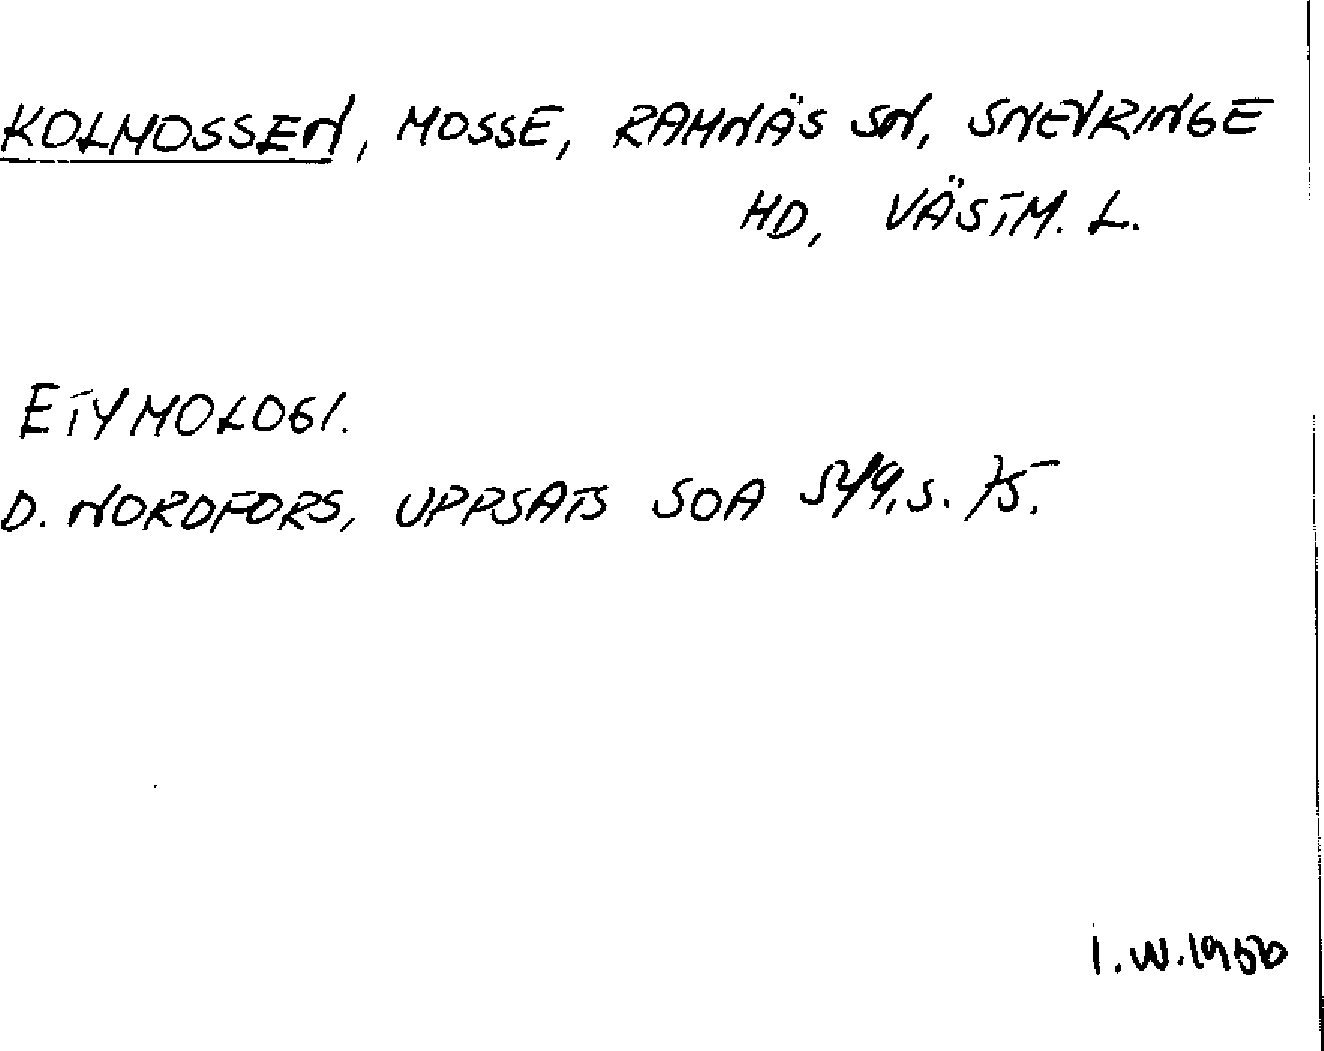 KOLMOSSEN, MOSSE, RAMNÄS SN, SNEVRINGE
HD, VÄSTM. L.
ETYMOLOGI.
D. NORDFORS, UPPSATS SOA 5494, S. 75.
I. W. 1950